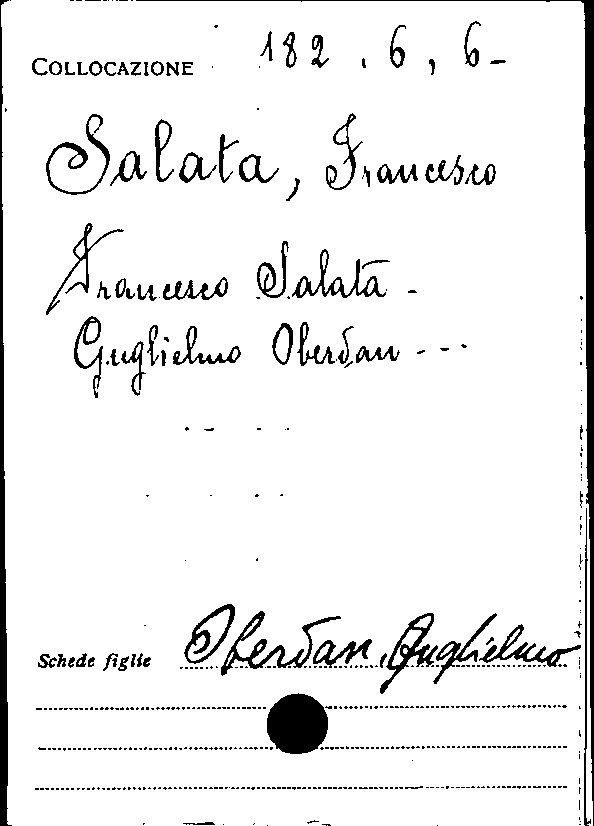 COLLOCAZIONE 182.6,6-
Salata, Francesco
Francesco Salata -
Guglielmo Oberdan ---
Schede figlie Oberdan, Guglielmo